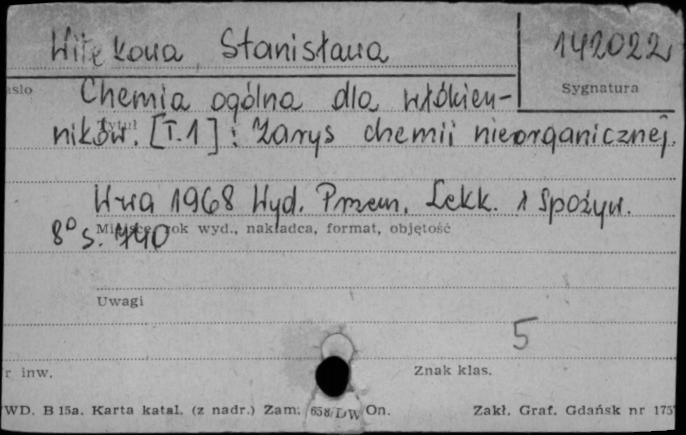 Witekowa, Stanisława 142022
asło Sygnatura
Chemia ogólna dla włókien-
Tytuł
ników. [T. 1] : Zarys chemii nieorganicznej.
W-wa 1968 Wyd. Przem. Lekk. i Spożyw.
Miejsce, rok wyd., nakładca, format, objętość
8° s. 440
Uwagi
5
r inw. Znak klas.
WD. B 15a. Karta katal. (z nadr.) Zam. 658/DW On. Zakł. Graf. Gdańsk nr 175